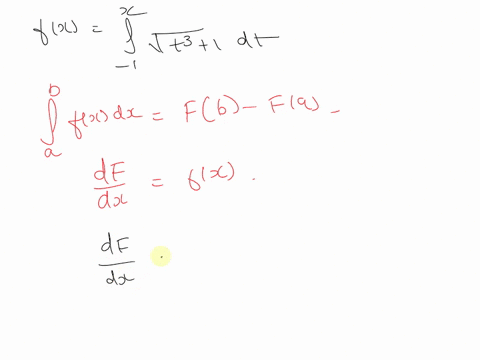 f(x) = ∫_{-1}^{x} √(t³+1) dt
∫_{a}^{b} f(x) dx = F(b) - F(a) -
dF/dx = f(x) .
dF/dx